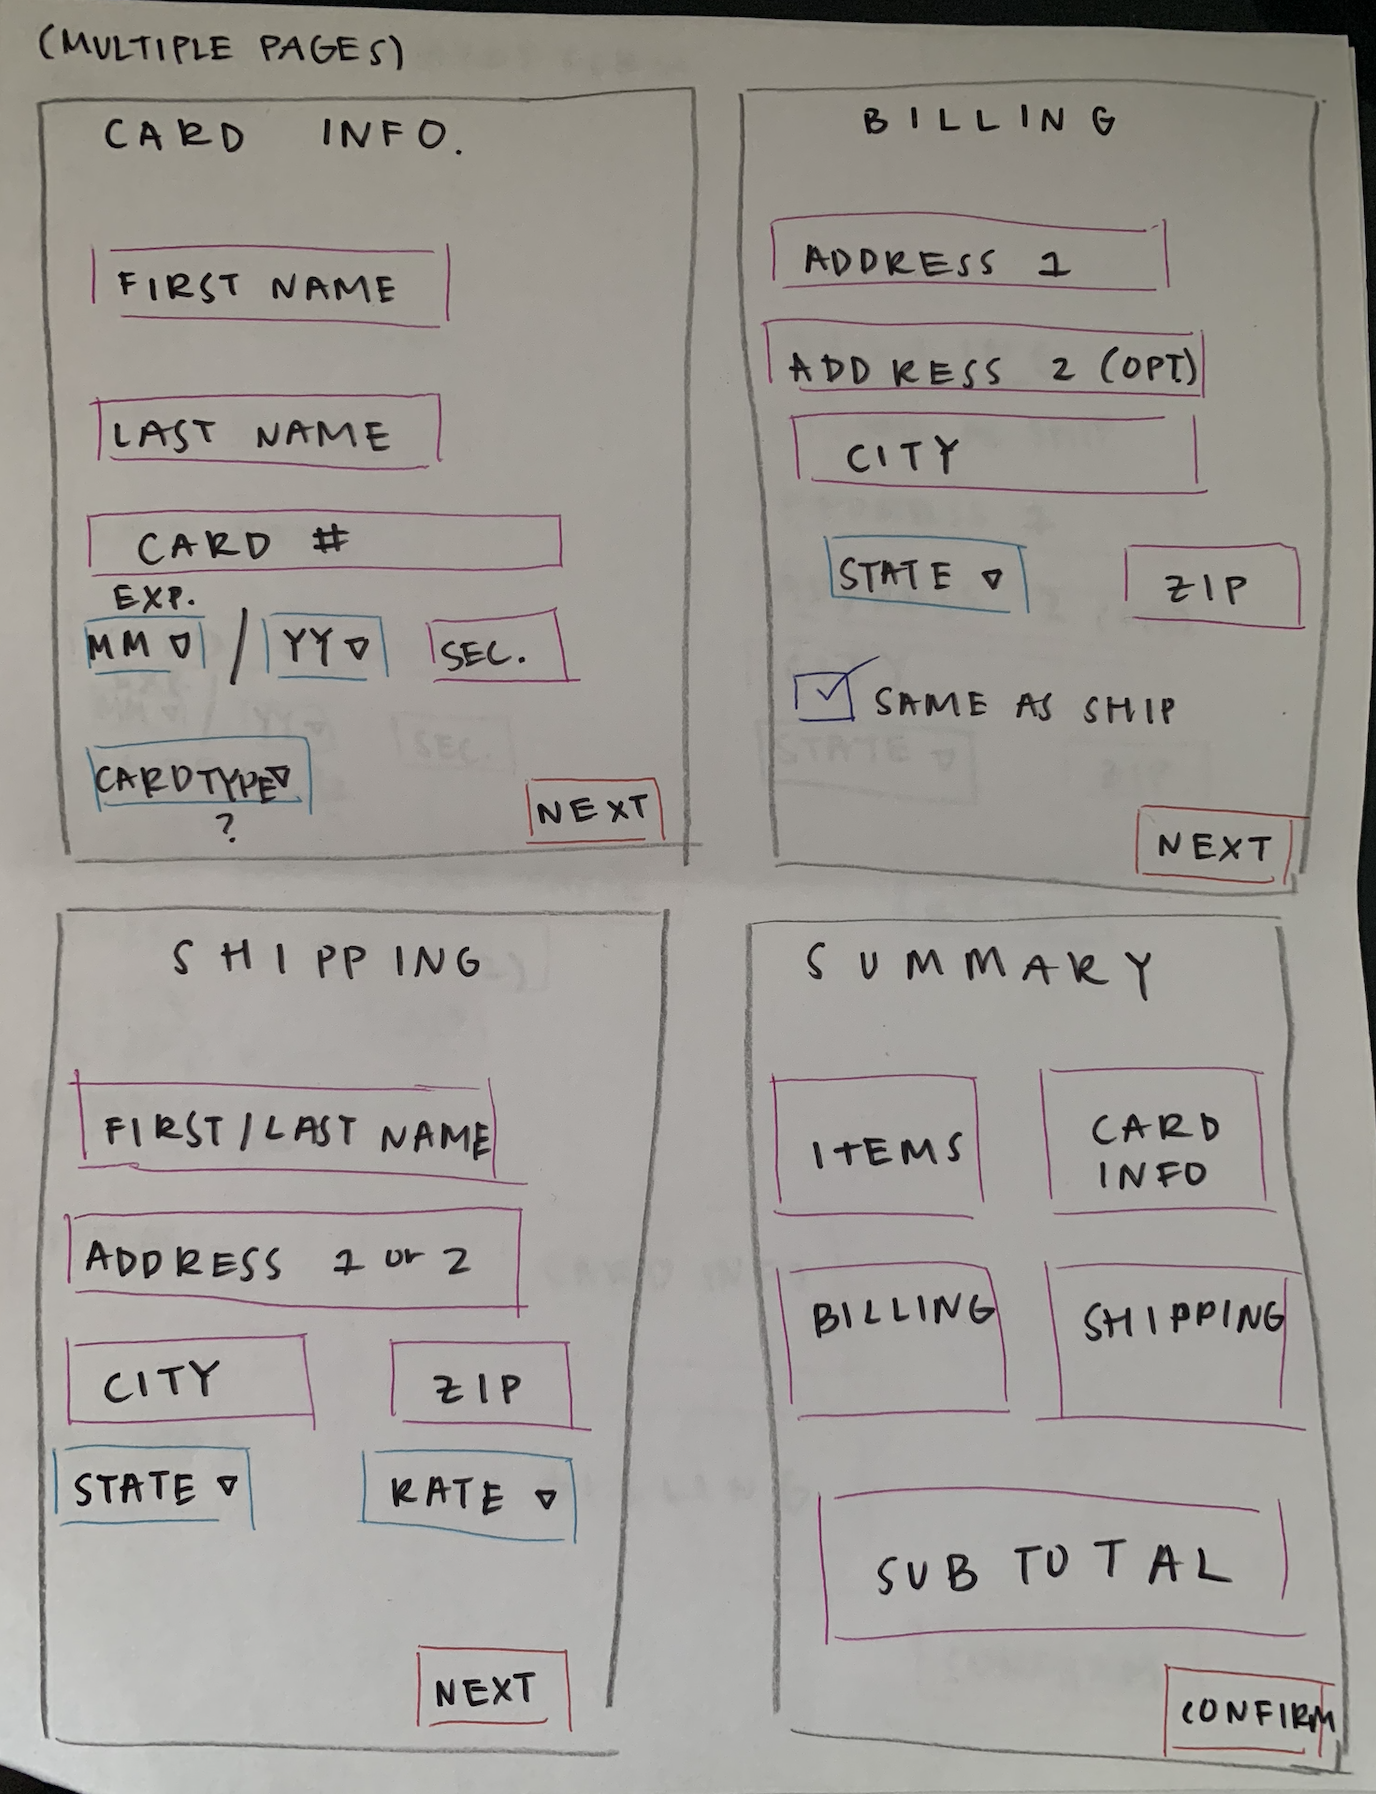 (MULTIPLE PAGES)
CARD INFO.
FIRST NAME
LAST NAME
CARD #
EXP.
MM / YY SEC.
CARDTYPE
?
NEXT
BILLING
ADDRESS 1
ADDRESS 2 (OPT)
CITY
STATE ZIP
SAME AS SHIP
NEXT
SHIPPING
FIRST/LAST NAME
ADDRESS 1 or 2
CITY ZIP
STATE RATE
NEXT
SUMMARY
ITEMS
CARD
INFO
BILLING SHIPPING
SUBTOTAL
CONFIRM